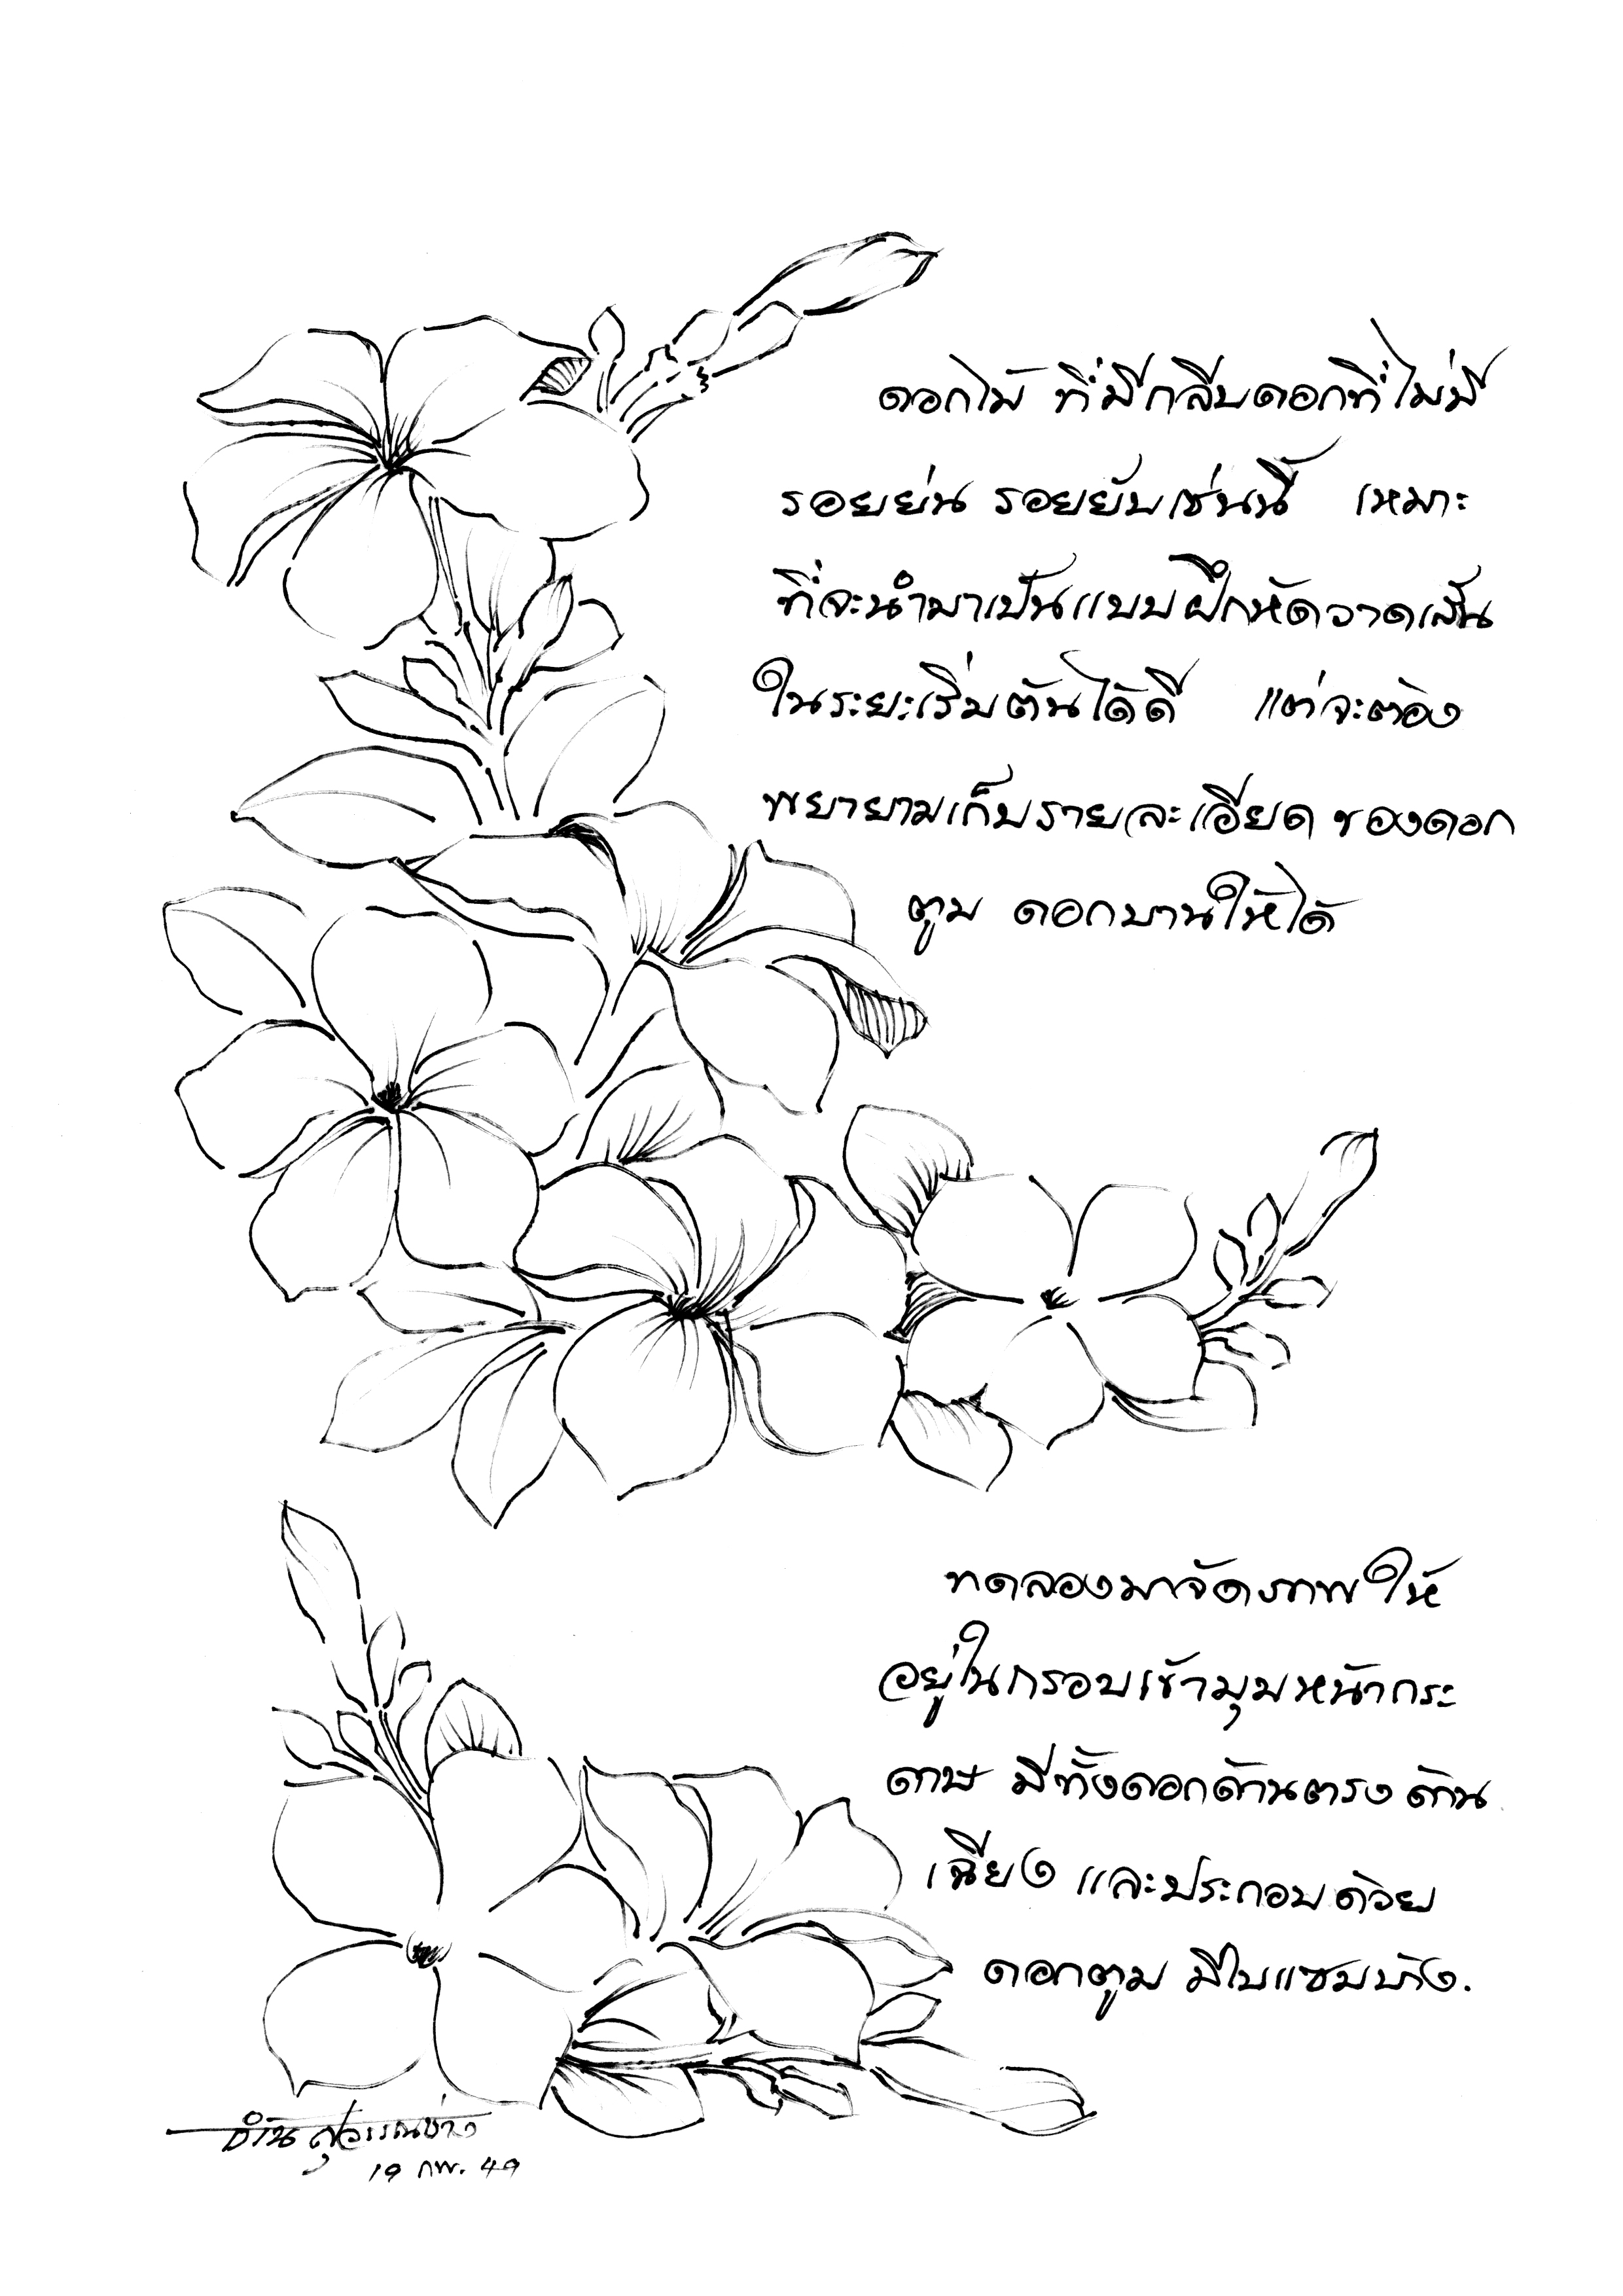 ดอกไม้ ที่มีกลีบดอกที่ไม่มี
รอยย่น รอยยับเช่นนี้ เหมาะ
ที่จะนำมาเป็นแบบฝึกหัดวาดเส้น
ในระยะเริ่มต้นได้ดี แต่จะต้อง
พยายามเก็บรายละเอียด ของดอก
ตูม ดอกบานให้ได้
ทดลองมาจัดภาพให้
อยู่ในกรอบเข้ามุมหน้ากระ
ดาษ มีทั้งดอกด้านตรง ด้าน
เฉียง และประกอบด้วย
ดอกตูม มีใบแซมบ้าง.
สุวรรณช่าง
19 กพ. 49